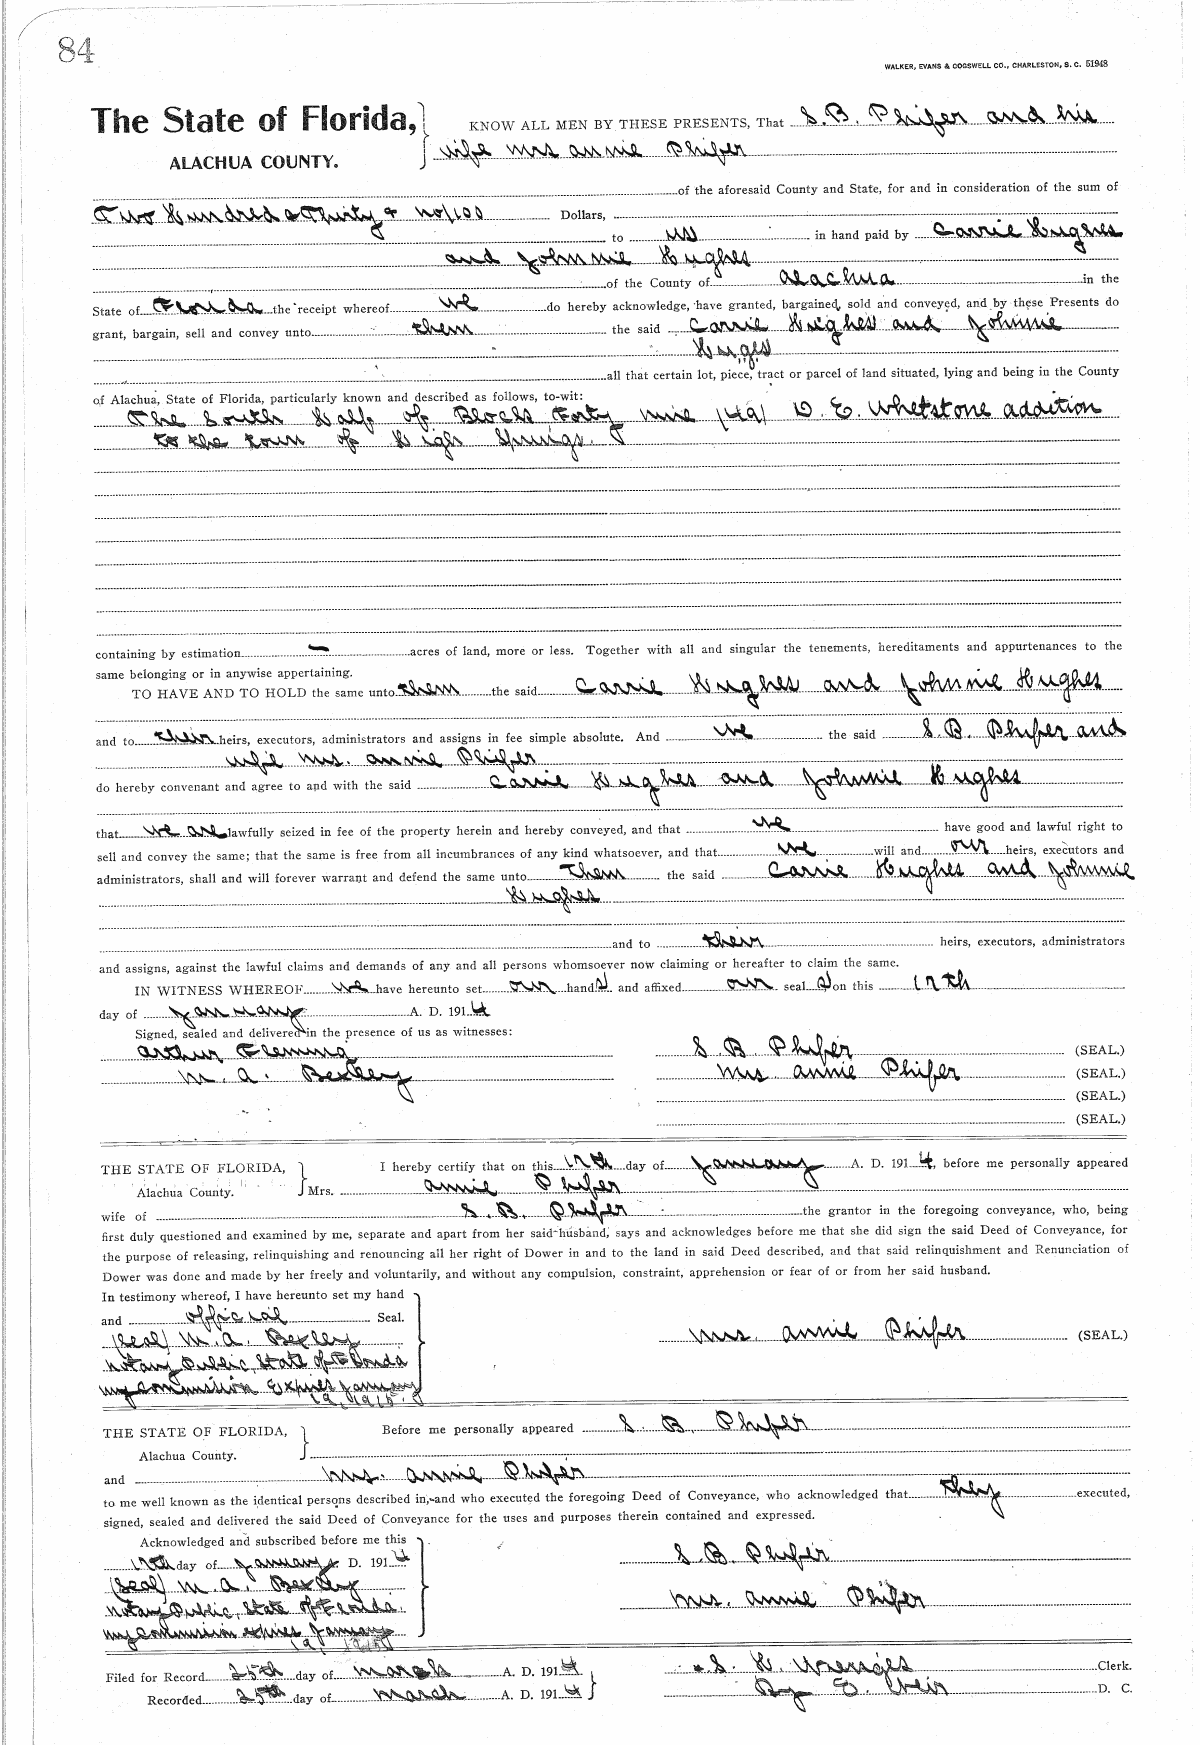 84
WALKER, EVANS & COGSWELL CO., CHARLESTON, S. C. 51948
The State of Florida, KNOW ALL MEN BY THESE PRESENTS, That S. B. Phifer and his
ALACHUA COUNTY. wife Mrs annie Phifer
of the aforesaid County and State, for and in consideration of the sum of
Two Hundred & Thirty & no/100 Dollars,
to us in hand paid by Carrie Hughes
and Johnnie Hughes
of the County of Alachua in the
State of Florida the receipt whereof we do hereby acknowledge, have granted, bargained, sold and conveyed, and by these Presents do
grant, bargain, sell and convey unto them the said Carrie Hughes and Johnnie
Huges
all that certain lot, piece, tract or parcel of land situated, lying and being in the County
of Alachua, State of Florida, particularly known and described as follows, to-wit:
The South Half of Block Forty nine (49) D. E. Whetstone addition
to the town of High Springs.
containing by estimation — acres of land, more or less. Together with all and singular the tenements, hereditaments and appurtenances to the
same belonging or in anywise appertaining.
TO HAVE AND TO HOLD the same unto them the said Carrie Hughes and Johnnie Hughes
and to their heirs, executors, administrators and assigns in fee simple absolute. And we the said S. B. Phifer and
wife Mrs. annie Phifer
do hereby convenant and agree to and with the said Carrie Hughes and Johnnie Hughes
that we are lawfully seized in fee of the property herein and hereby conveyed, and that we have good and lawful right to
sell and convey the same; that the same is free from all incumbrances of any kind whatsoever, and that we will and our heirs, executors and
administrators, shall and will forever warrant and defend the same unto them the said Carrie Hughes and Johnnie
Hughes
and to their heirs, executors, administrators
and assigns, against the lawful claims and demands of any and all persons whomsoever now claiming or hereafter to claim the same.
IN WITNESS WHEREOF we have hereunto set our hands and affixed our seals on this 17th
day of January A. D. 1914
Signed, sealed and delivered in the presence of us as witnesses:
Arthur Fleming S B Phifer (SEAL.)
M. A. Bexley Mrs annie Phifer (SEAL.)
(SEAL.)
(SEAL.)
THE STATE OF FLORIDA, I hereby certify that on this 17th day of January A. D. 1914, before me personally appeared
Alachua County. Mrs. annie Phifer
wife of S. B. Phifer the grantor in the foregoing conveyance, who, being
first duly questioned and examined by me, separate and apart from her said husband, says and acknowledges before me that she did sign the said Deed of Conveyance, for
the purpose of releasing, relinquishing and renouncing all her right of Dower in and to the land in said Deed described, and that said relinquishment and Renunciation of
Dower was done and made by her freely and voluntarily, and without any compulsion, constraint, apprehension or fear of or from her said husband.
In testimony whereof, I have hereunto set my hand
and official Seal.
(Seal) M. A. Bexley Mrs. annie Phifer (SEAL.)
Notary Public, State of Florida
my Commission Expires January
19, 1915.
THE STATE OF FLORIDA, Before me personally appeared S B. Phifer
Alachua County.
and Mrs. annie Phifer
to me well known as the identical persons described in, and who executed the foregoing Deed of Conveyance, who acknowledged that they executed,
signed, sealed and delivered the said Deed of Conveyance for the uses and purposes therein contained and expressed.
Acknowledged and subscribed before me this
17th day of January D. 1914 S. B. Phifer
(Seal) M. A. Bexley
Notary Public, State of Florida. Mrs. Annie Phifer
my Commission expires January
19 1915
Filed for Record 25th day of march A. D. 1914 S. H. Wienges Clerk.
Recorded 25th day of march A. D. 1914 By E. D. C.